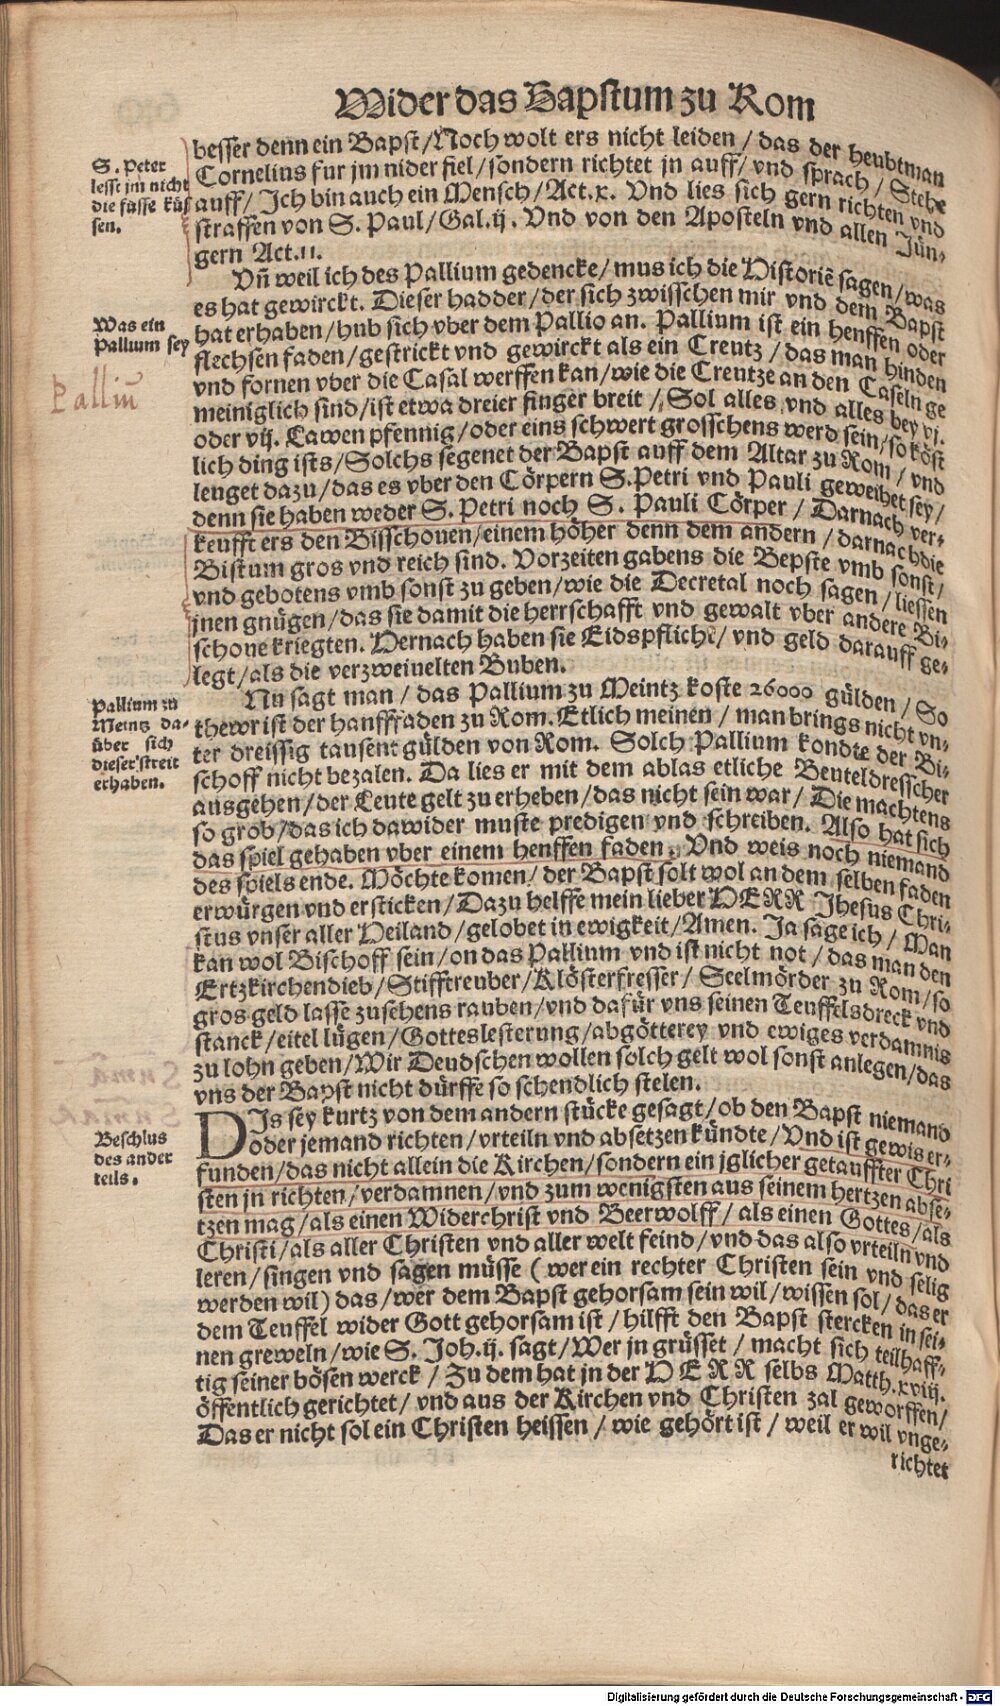 Wider das Bapstum zu Rom
besser denn ein Bapst/Noch wolt ers nicht leiden/das der heubtman
S. Peter
lesst jm nicht
die füsse küs
sen.
Cornelius fur jm nider fiel/sondern richtet jn auff/vnd sprach/Stehe
auff/Ich bin auch ein Mensch/Act.x. Vnd lies sich gern richten vnd
straffen von S. Paul/Gal.ij. Vnd von den Aposteln vnd allen Jün-
gern Act.11.
Vn̄ weil ich des Pallium gedencke/mus ich die Historiē sagen/was
es hat gewirckt. Dieser hadder/der sich zwisschen mir vnd dem Bapst
Was ein
Pallium sey
hat erhaben/hub sich vber dem Pallio an. Pallium ist ein henffen oder
flechsen faden/gestrickt vnd gewirckt als ein Creutz/das man hinden
Palliū
vnd fornen vber die Casal werffen kan/wie die Creutze an den Caseln ge
meiniglich sind/ist etwa dreier finger breit/Sol alles vnd alles bey vj.
oder vij. Lawen pfennig/oder eins schwert grosschens werd sein/so köst
lich ding ists/Solchs segenet der Bapst auff dem Altar zu Rom/vnd
leuget dazu/das es vber den Cörpern S. Petri vnd Pauli geweihet sey/
denn sie haben weder S. Petri noch S. Pauli Cörper/Darnach ver-
keufft ers den Bisschouen/einem höher denn dem andern/darnach die
Bistum gros vnd reich sind. Vorzeiten gabens die Bepste vmb sonst/
vnd gebotens vmb sonst zu geben/wie die Decretal noch sagen/liessen
jnen gnügen/das sie damit die herrschafft vnd gewalt vber andere Bi-
schoue kriegten. Hernach haben sie Eidspflicht/vnd geld darauff ge-
legt/als die verzweiuelten Buben.
Pallium zu
Meintz da-
über sich
dieser streit
erhaben.
Nu sagt man/das Pallium zu Meintz koste 26000 gülden/So
thewr ist der hanffraden zu Rom. Etlich meinen/man brings nicht vn-
ter dreissig tausent gülden von Rom. Solch Pallium kondte der Bi-
schoff nicht bezalen. Da lies er mit dem ablas etliche Beuteldresscher
ausgehen/der Leute gelt zu erheben/das nicht sein war/Die machtens
so grob/das ich dawider muste predigen vnd schreiben. Also hat sich
das spiel gehaben vber einem henffen faden. Vnd weis noch niemand
des spiels ende. Möchte komen/der Bapst solt wol an dem selben faden
erwürgen vnd ersticken/Dazu helffe mein lieber HERR Jhesus Chri-
stus vnser aller Heiland/gelobet in ewigkeit/Amen. Ja sage ich/Man
kan wol Bischoff sein/on das Pallium vnd ist nicht not/das man den
Ertzkirchendieb/Stifftreuber/Klösterfresser/Seelmörder zu Rom/so
gros geld lasse zusehens rauben/vnd dafür vns seinen Teuffelsdreck vnd
stanck/eitel lügen/Gotteslesterung/abgötterey vnd ewiges verdamnis
zu lohn geben/Wir Deudschen wollen solch gelt wol sonst anlegen/das
vns der Bapst nicht dürffe so schendlich stelen.
Beschlus
des ander
teils.
DIs sey kurtz von dem andern stücke gesagt/ob den Bapst niemand
oder jemand richten/vrteiln vnd absetzen kündte/Vnd ist gewis er-
funden/das nicht allein die Kirchen/sondern ein jglicher getauffter Chri
sten jn richten/verdamnen/vnd zum wenigsten aus seinem hertzen abse-
tzen mag/als einen Widerchrist vnd Beerwolff/als einen Gottes/als
Christi/als aller Christen vnd aller welt feind/vnd das also vrteiln vnd
leren/singen vnd sagen müsse (wer ein rechter Christen sein vnd selig
werden wil) das/wer dem Bapst gehorsam sein wil/wissen sol/das er
dem Teuffel wider Gott gehorsam ist/hilfft den Bapst stercken in sei-
nen greweln/wie S. Joh.ij. sagt/Wer jn grüsset/macht sich teilhaff-
tig seiner bösen werck/Zu dem hat jn der HERR selbs Matth.xviij.
öffentlich gerichtet/vnd aus der Kirchen vnd Christen zal geworffen/
Das er nicht sol ein Christen heissen/wie gehört ist/weil er wil vnge-
richtet
Digitalisierung gefördert durch die Deutsche Forschungsgemeinschaft - DFG